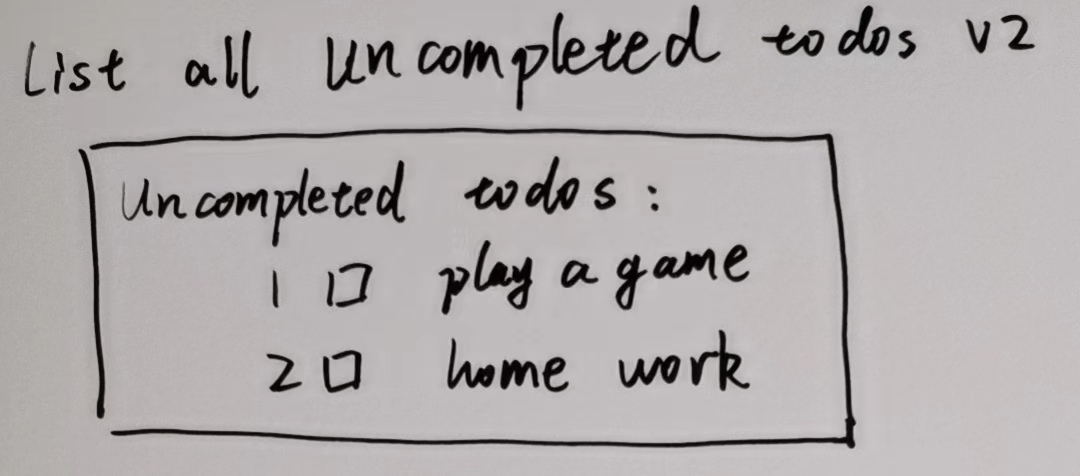 List all uncompleted todos v2
Uncompleted todos:
1 □ play a game
2 □ home work